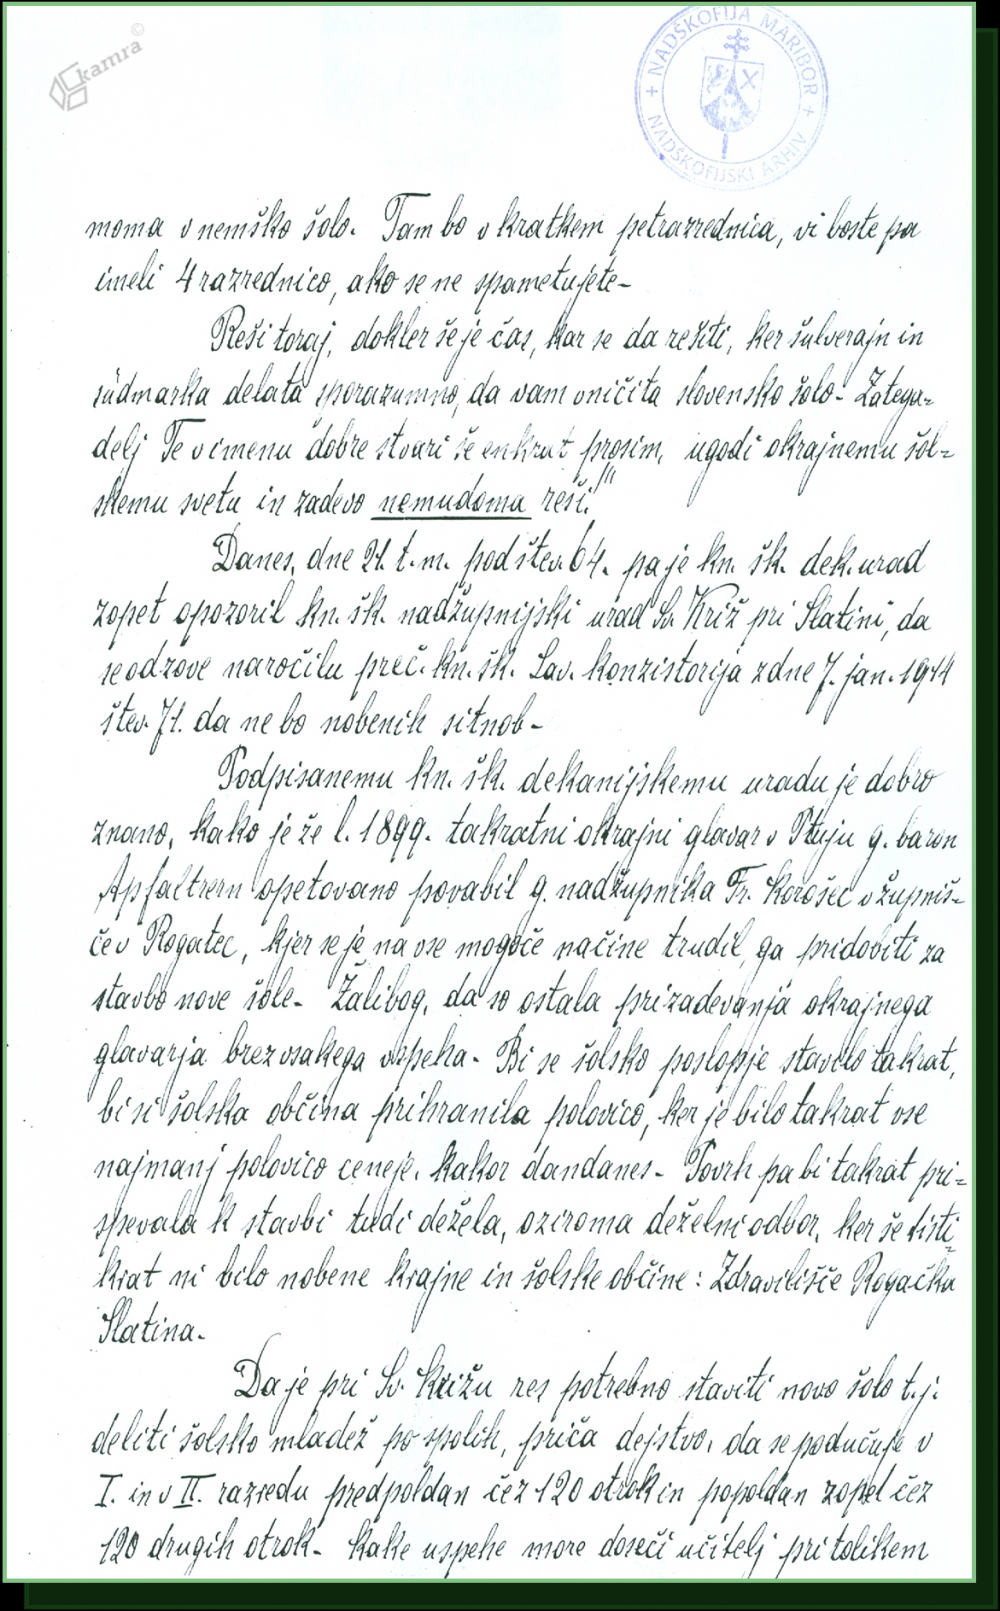 kamra ©
+ NADŠKOFIJA MARIBOR +
NADŠKOFIJSKI ARHIV
moma v nemško šolo. Tam bo v kratkem petrazrednica, vi boste pa
imeli 4 razrednico, ako se ne spametujete-
Reši toraj, dokler še je čas, kar se da rešiti, ker šulverajn in
südmarka delata sporazumno, da vam vničita slovensko šolo- Zatega=
delj Te v imenu dobre stvari še enkrat prosim, ugodi okrajnemu šol=
skemu svetu in zadevo nemudoma reši!"
Danes, dne 21. t. m. pod štev. 64. pa je kn. šk. dek. urad
zopet opozoril kn. šk. nadžupnijski urad Sv. Križ pri Slatini, da
se odzove naročilu preč. kn. šk. Lav. konzistorija z dne 7. jan. 1914
štev. 71. da ne bo nobenih sitnob-
Podpisanemu kn. šk. dekanijskemu uradu je dobro
znano, kako je že l. 1899. takratni okrajni glavar v Ptuju g. baron
Apfaltrern opetovano povabil g. nadžupnika Fr. Korošec v župniš=
če v Rogatec, kjer se je na vse mogoče načine trudil, ga pridobiti za
stavbo nove šole- Žalibog, da so ostala prizadevanja okrajnega
glavarja brez vsakega vspeha- Bi se šolsko poslopje stavilo takrat,
bi si šolska občina prihranila polovico, ker je bilo takrat vse
najmanj polovico ceneje, kakor dandanes- Povrh pa bi takrat pri=
spevala k stavbi tudi dežela, oziroma deželni odbor, ker še tisti=
krat ni bilo nobene krajne in šolske občine: Zdravilišče Rogačka
Slatina-
Da je pri Sv. Križu res potrebno staviti novo šolo t. j.
deliti šolsko mladež po spolih, priča dejstvo, da se podučuje v
I. in v II. razredu predpoldan čez 120 otrok in popoldan zopet čez
120 drugih otrok- Kake uspehe more doseči učitelj pri tolikem